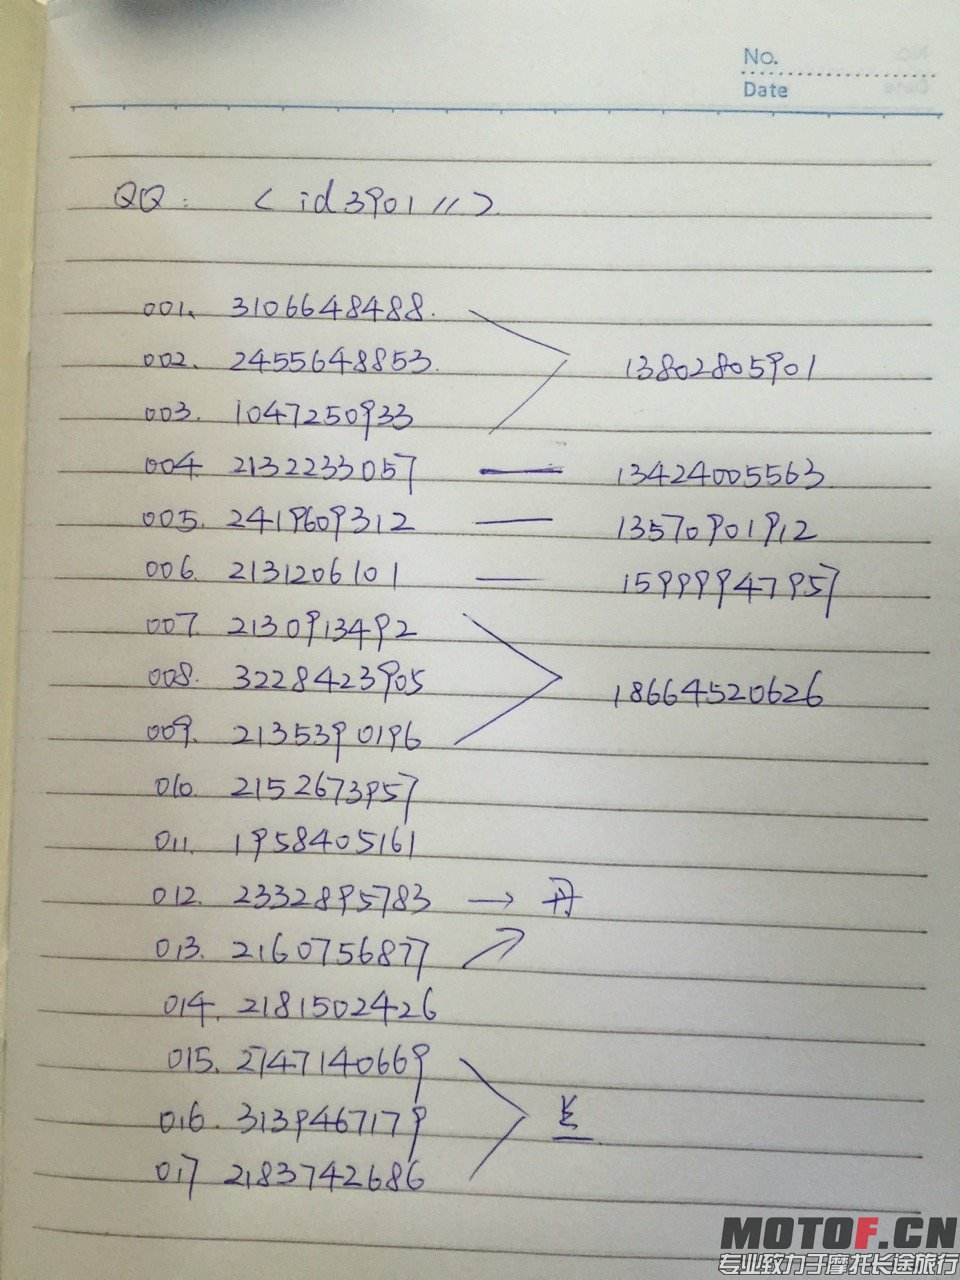 No.
Date
QQ: < id3901 // >
001. 3106648488.
002. 2455648853.
13802805901
003. 1047250933
004 2132233057 — 13424005563
005. 2419609312 — 13570901912
006. 2131206101 — 15999947957
007. 2130913492
008. 3228423905
18664520626
009. 2135390196
010. 2152673957
011. 1958405161
012. 2332895783 → 丹
013. 2160756877
014. 2181502426
015. 2747140669
016. 3139467179
017 2183742686
MOTOF.CN
专业致力于摩托长途旅行